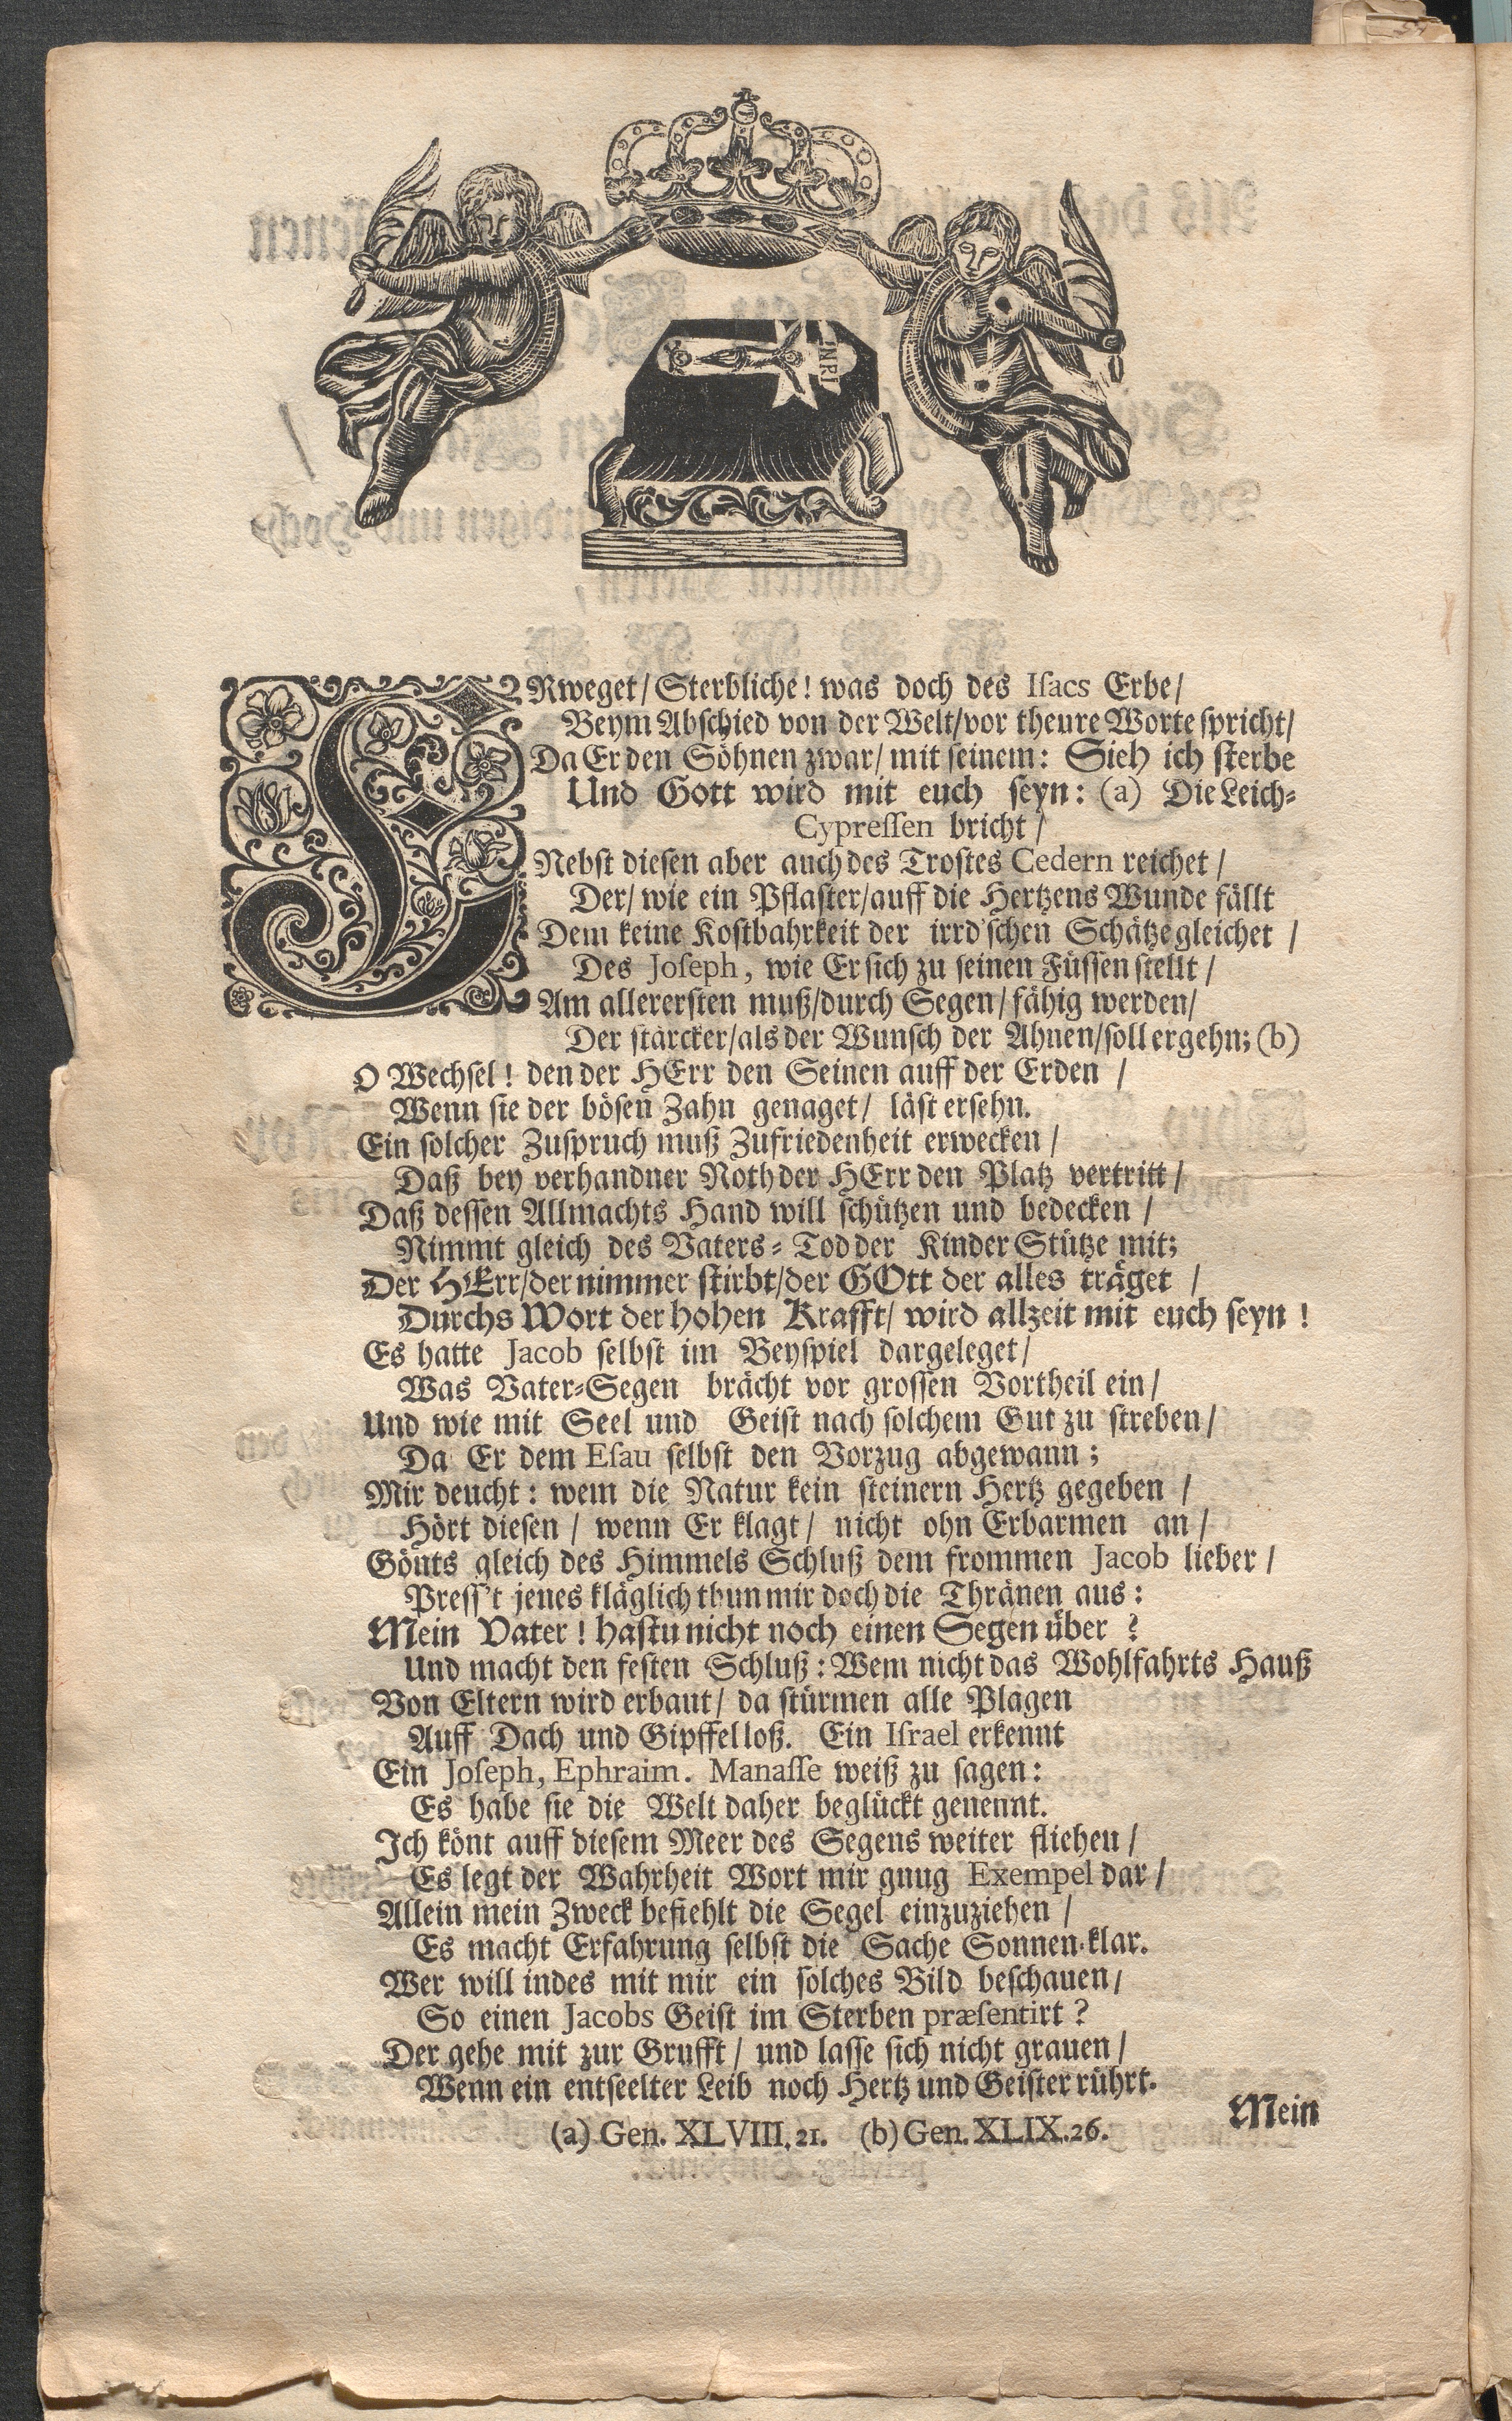 INRI
ERweget/ Sterbliche! was doch des Isacs Erbe/
Beym Abschied von der Welt/vor theure Worte spricht/
Da Er den Söhnen zwar/ mit seinem: Sieh ich sterbe
Und Gott wird mit euch seyn: (a) Die Leich-
Cypressen bricht/
Nebst diesen aber auch des Trostes Cedern reichet/
Der/ wie ein Pflaster/auff die Hertzens Wunde fällt
Dem keine Kostbahrkeit der irrd'schen Schätze gleichet/
Des Joseph, wie Er sich zu seinen Füssen stellt/
Am allerersten muß/durch Segen/ fähig werden/
Der stärcker/als der Wunsch der Ahnen/soll ergehn; (b)
O Wechsel! den der HErr den Seinen auff der Erden/
Wenn sie der bösen Zahn genaget/ läst ersehn.
Ein solcher Zuspruch muß Zufriedenheit erwecken/
Daß bey verhandner Noth der HErr den Platz vertritt/
Daß dessen Allmachts Hand will schützen und bedecken/
Nimmt gleich des Vaters-Tod der Kinder Stütze mit;
Der HErr/der nimmer stirbt/der GOtt der alles träget/
Durchs Wort der hohen Krafft/ wird allzeit mit euch seyn!
Es hatte Jacob selbst im Beyspiel dargeleget/
Was Vater-Segen brächt vor grossen Vortheil ein/
Und wie mit Seel und Geist nach solchem Gut zu streben/
Da Er dem Esau selbst den Vorzug abgewann;
Mir deucht: wem die Natur kein steinern Hertz gegeben/
Hört diesen/ wenn Er klagt/ nicht ohn Erbarmen an/
Gönts gleich des Himmels Schluß dem frommen Jacob lieber/
Press't jenes kläglich thun mir doch die Thränen aus:
Mein Vater! hastu nicht noch einen Segen über?
Und macht den festen Schluß: Wem nicht das Wohlfahrts Hauß
Von Eltern wird erbaut/ da stürmen alle Plagen
Auff Dach und Gipffel loß. Ein Israel erkennt
Ein Joseph, Ephraim. Manasse weiß zu sagen:
Es habe sie die Welt daher beglückt genennt.
Ich könt auff diesem Meer des Segens weiter fliehen/
Es legt der Wahrheit Wort mir gnug Exempel dar/
Allein mein Zweck befiehlt die Segel einzuziehen/
Es macht Erfahrung selbst die Sache Sonnen-klar.
Wer will indes mit mir ein solches Bild beschauen/
So einen Jacobs Geist im Sterben præsentirt?
Der gehe mit zur Grufft/ und lasse sich nicht grauen/
Wenn ein entseelter Leib noch Hertz und Geister rührt.
Mein
(a) Gen. XLVIII. 21. (b) Gen. XLIX. 26.